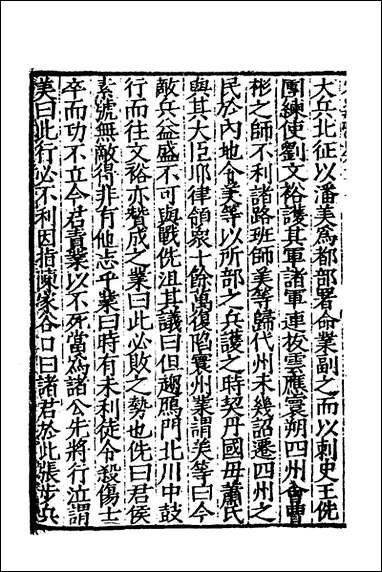 大兵北征以潘美爲都部署命業副之而以刺史王侁
團練使劉文裕護其軍諸軍連拔雲應寰朔四州會曹
彬之師不利諸路班師美等歸代州未幾詔遷四州之
民於内地令美等以所部之兵護之時契丹國毋蕭氏
與其大臣耶律領衆十餘萬復陷寰州業謂美等曰今
敵兵益盛不可與戰侁沮其議曰但趨鴈門北川中鼓
行而往文裕亦贊成之業曰此必敗之勢也侁曰君侯
素號無敵得非有他志乎業曰時有未利徒令殺傷士
卒而功不立今君責業以不死當爲諸公先將行泣謂
美曰此行必不利因指陳家谷口曰諸君於此張步兵